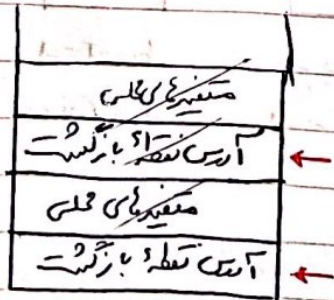 متغیرهای محلی
آدرس نقطهٔ بازگشت
متغیرهای محلی
آدرس نقطهٔ بازگشت